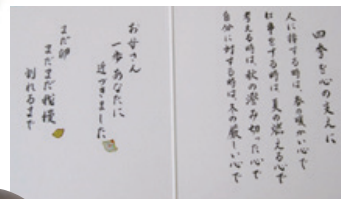 四季を心の支えに
人に接する時は、春の暖かい心で
仕事をする時は、夏の燃える心で
考える時は、秋の澄み切った心で
自分に対する時は、冬の厳しい心で
お母さん
一歩あなたに
近づきました
まだ卵
まだまだ我慢
割れるまで